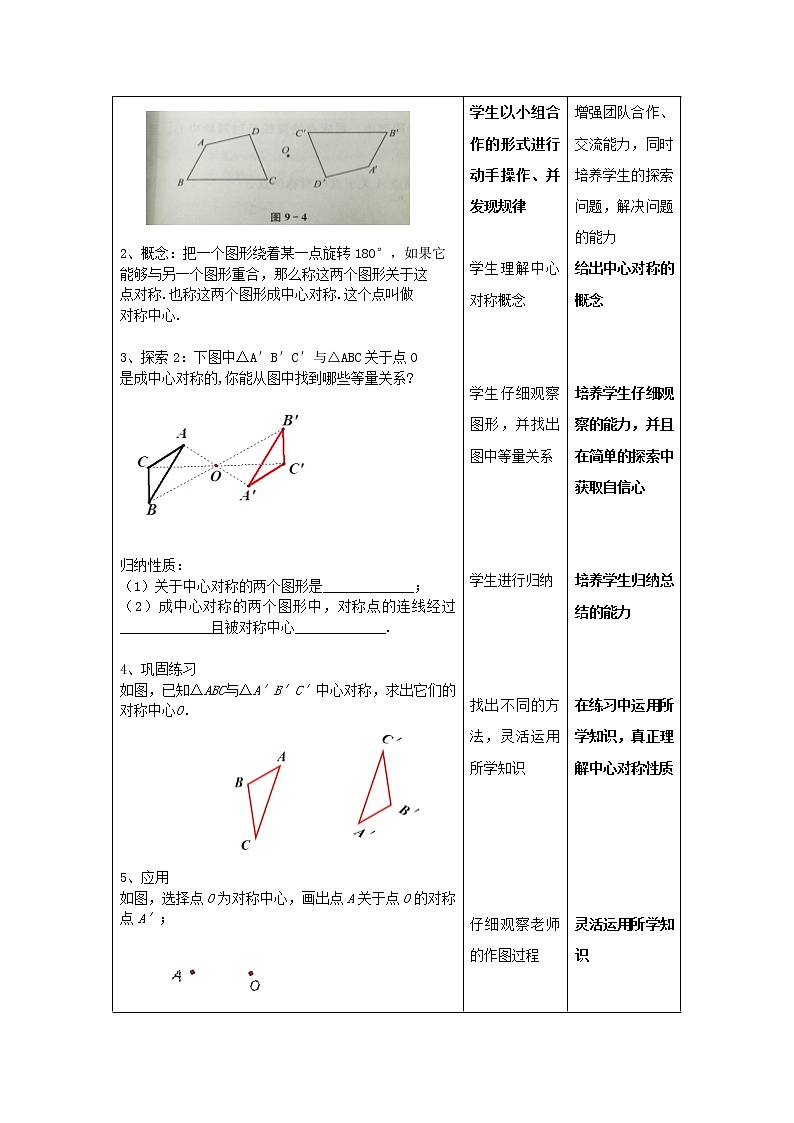 A
D
B
C
O
C′
B′
D′
A′
图 9-4
2、概念:把一个图形绕着某一点旋转180°,如果它
能够与另一个图形重合,那么称这两个图形关于这
点对称.也称这两个图形成中心对称.这个点叫做
对称中心.
3、探索2:下图中△A′B′C′与△ABC关于点O
是成中心对称的,你能从图中找到哪些等量关系?
A
B′
C
O
C′
A′
B
归纳性质:
(1)关于中心对称的两个图形是____________;
(2)成中心对称的两个图形中,对称点的连线经过
____________且被对称中心____________.
4、巩固练习
如图,已知△ABC与△A′B′C′中心对称,求出它们的
对称中心O.
A
B
C
C′
B′
A′
5、应用
如图,选择点O为对称中心,画出点A关于点O的对称
点A′;
A
O
学生以小组合
作的形式进行
动手操作、并
发现规律
学生理解中心
对称概念
学生仔细观察
图形,并找出
图中等量关系
学生进行归纳
找出不同的方
法,灵活运用
所学知识
仔细观察老师
的作图过程
增强团队合作、
交流能力,同时
培养学生的探索
问题,解决问题
的能力
给出中心对称的
概念
培养学生仔细观
察的能力,并且
在简单的探索中
获取自信心
培养学生归纳总
结的能力
在练习中运用所
学知识,真正理
解中心对称性质
灵活运用所学知
识